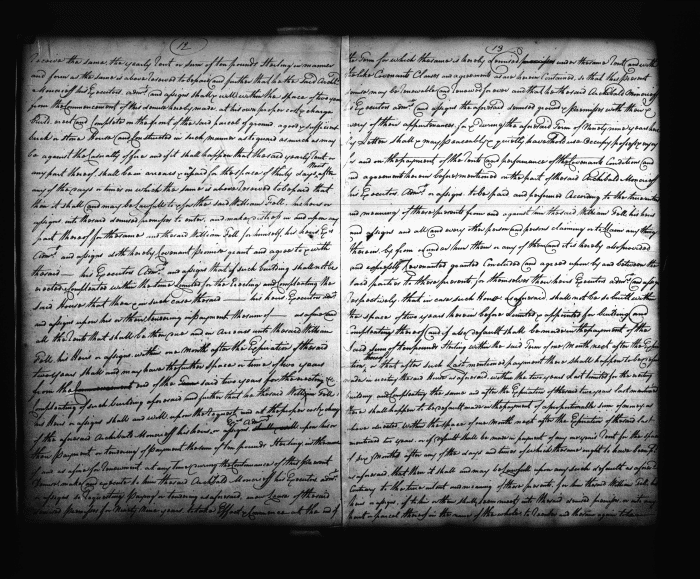 12
receive the same, the yearly Rent or sum of ten pounds Sterling in manner
and form as the same is above reserved to be paid and further that he the said Archibald
Moncreiff his Executors, adm.rs and assigns shall & will within the space of two years
from the Commencement of this demise hereby made, at his own proper cost & charge
Build, erect and Complete in the front of the said parcel of ground a good & sufficient
Brick or Stone House Constructed in such manner as to guard as much as may
be against the Casualty of fire and if it shall happen that the said yearly Rent or
any part thereof shall be in arrear & unpaid for the space of thirty days, after
any of the days or times in which the same is above reserved to be paid that
then it shall & may be Lawful to & for the said William Fell, his heirs or
assigns into the said demised premises to enter, and make distress in and upon any
part thereof for the same and the said William Fell, for himself, his heirs Ex.rs
Adm.rs and assigns doth hereby Covenant promise grant and agree to & with
the said — his Executors Adm.rs and assigns that if such building shall not be
erected & completed within the time Limited for the Erecting and Completing the
said House that then & in such case the said — his heirs Executors adm.rs
and assigns upon his or their tendering in payment the sum of — as aforesaid
all the Rent that shall be then due and in Arrears unto the said William
Fell, his Heirs or assigns within one Month after the Expiration of the said
two years shall and may have the further space or time of two years
from the end of the said two years for the erecting &
Completing of such building aforesaid and further that he the said William Fell
his Heirs or assigns shall and will upon the Request and at the proper costs & charges
of the aforesaid Archibald Moncreiff his heirs or assigns upon his or
their payment or tendering of payment the sum of ten pounds Sterling in the name
of and as a fine for Renewment, at any time during the Continuance of this present
demise, make and execute to him the said Archibald Moncreiff his Executors adm.rs
or assigns so requesting paying or tendering as aforesaid, a new Lease of the said
demised premises for Ninety Nine years, to take Effect & Commence at the end of
13
the Term for which the same is hereby demised under the same Rent and with
the like Covenants Clauses and agreements as are herein Contained, so that this present
demise may be Renewable and Renewed for ever and that he the said Archibald Moncreiff
his Executors Adm.rs and assigns the aforesaid demised ground & premises with their &
every of their appurtenances for & during the aforesaid Term of Ninety nine years hereby
letten shall & may peaceably & quietly have hold use Occupy possess & enjoy
and on the payment of the Rent and performance of the Covenants Conditions and
agreements herein before mentioned on the part of the said Archibald Moncreiff
his Executors Adm.rs or assigns to be paid and performed According to the true intent
and meaning of these presents from and against him the said William Fell, his heirs
and assigns and all and every other person and persons claiming or to Claim any thing
therein by from or under him them or any of them and it is hereby also provided
and especially Covenanted granted Concluded and agreed upon by and between the
said parties to these presents for themselves their heirs Executors adm.rs and assigns
respectively that in case such House as aforesaid shall not be so built within
the space of two years herein before Limited & appointed for building and
Completing thereof and if also default shall be made in the payment of the
said sum of ten pounds Sterling within the said Term of one Month next after the Expiration
thereof, or that after such Last mentioned payment there shall happen to be & default
made in erecting the said House as aforesaid, within the two years last limited for the erecting
building and Completing the same and after the Expiration of the said two years last mentioned
there shall happen to be & default made in the payment of a proportionable sum of money as
herein directed within the space of one Month next after the Expiration of the said last
mentioned two years, or if default shall be made in payment of any one years Rent for the space
of six Months after any of the days and times on which the same ought to have been paid
as aforesaid, that then it shall and may be Lawful upon any such default as aforesaid
Contrary to the true intent and meaning of these presents, for him the said William Fell his
heirs or assigns of to his or their shall seem meet into the said demised premises, or into any
part or parcel thereof in the name of the whole, to reenter and the same again to have